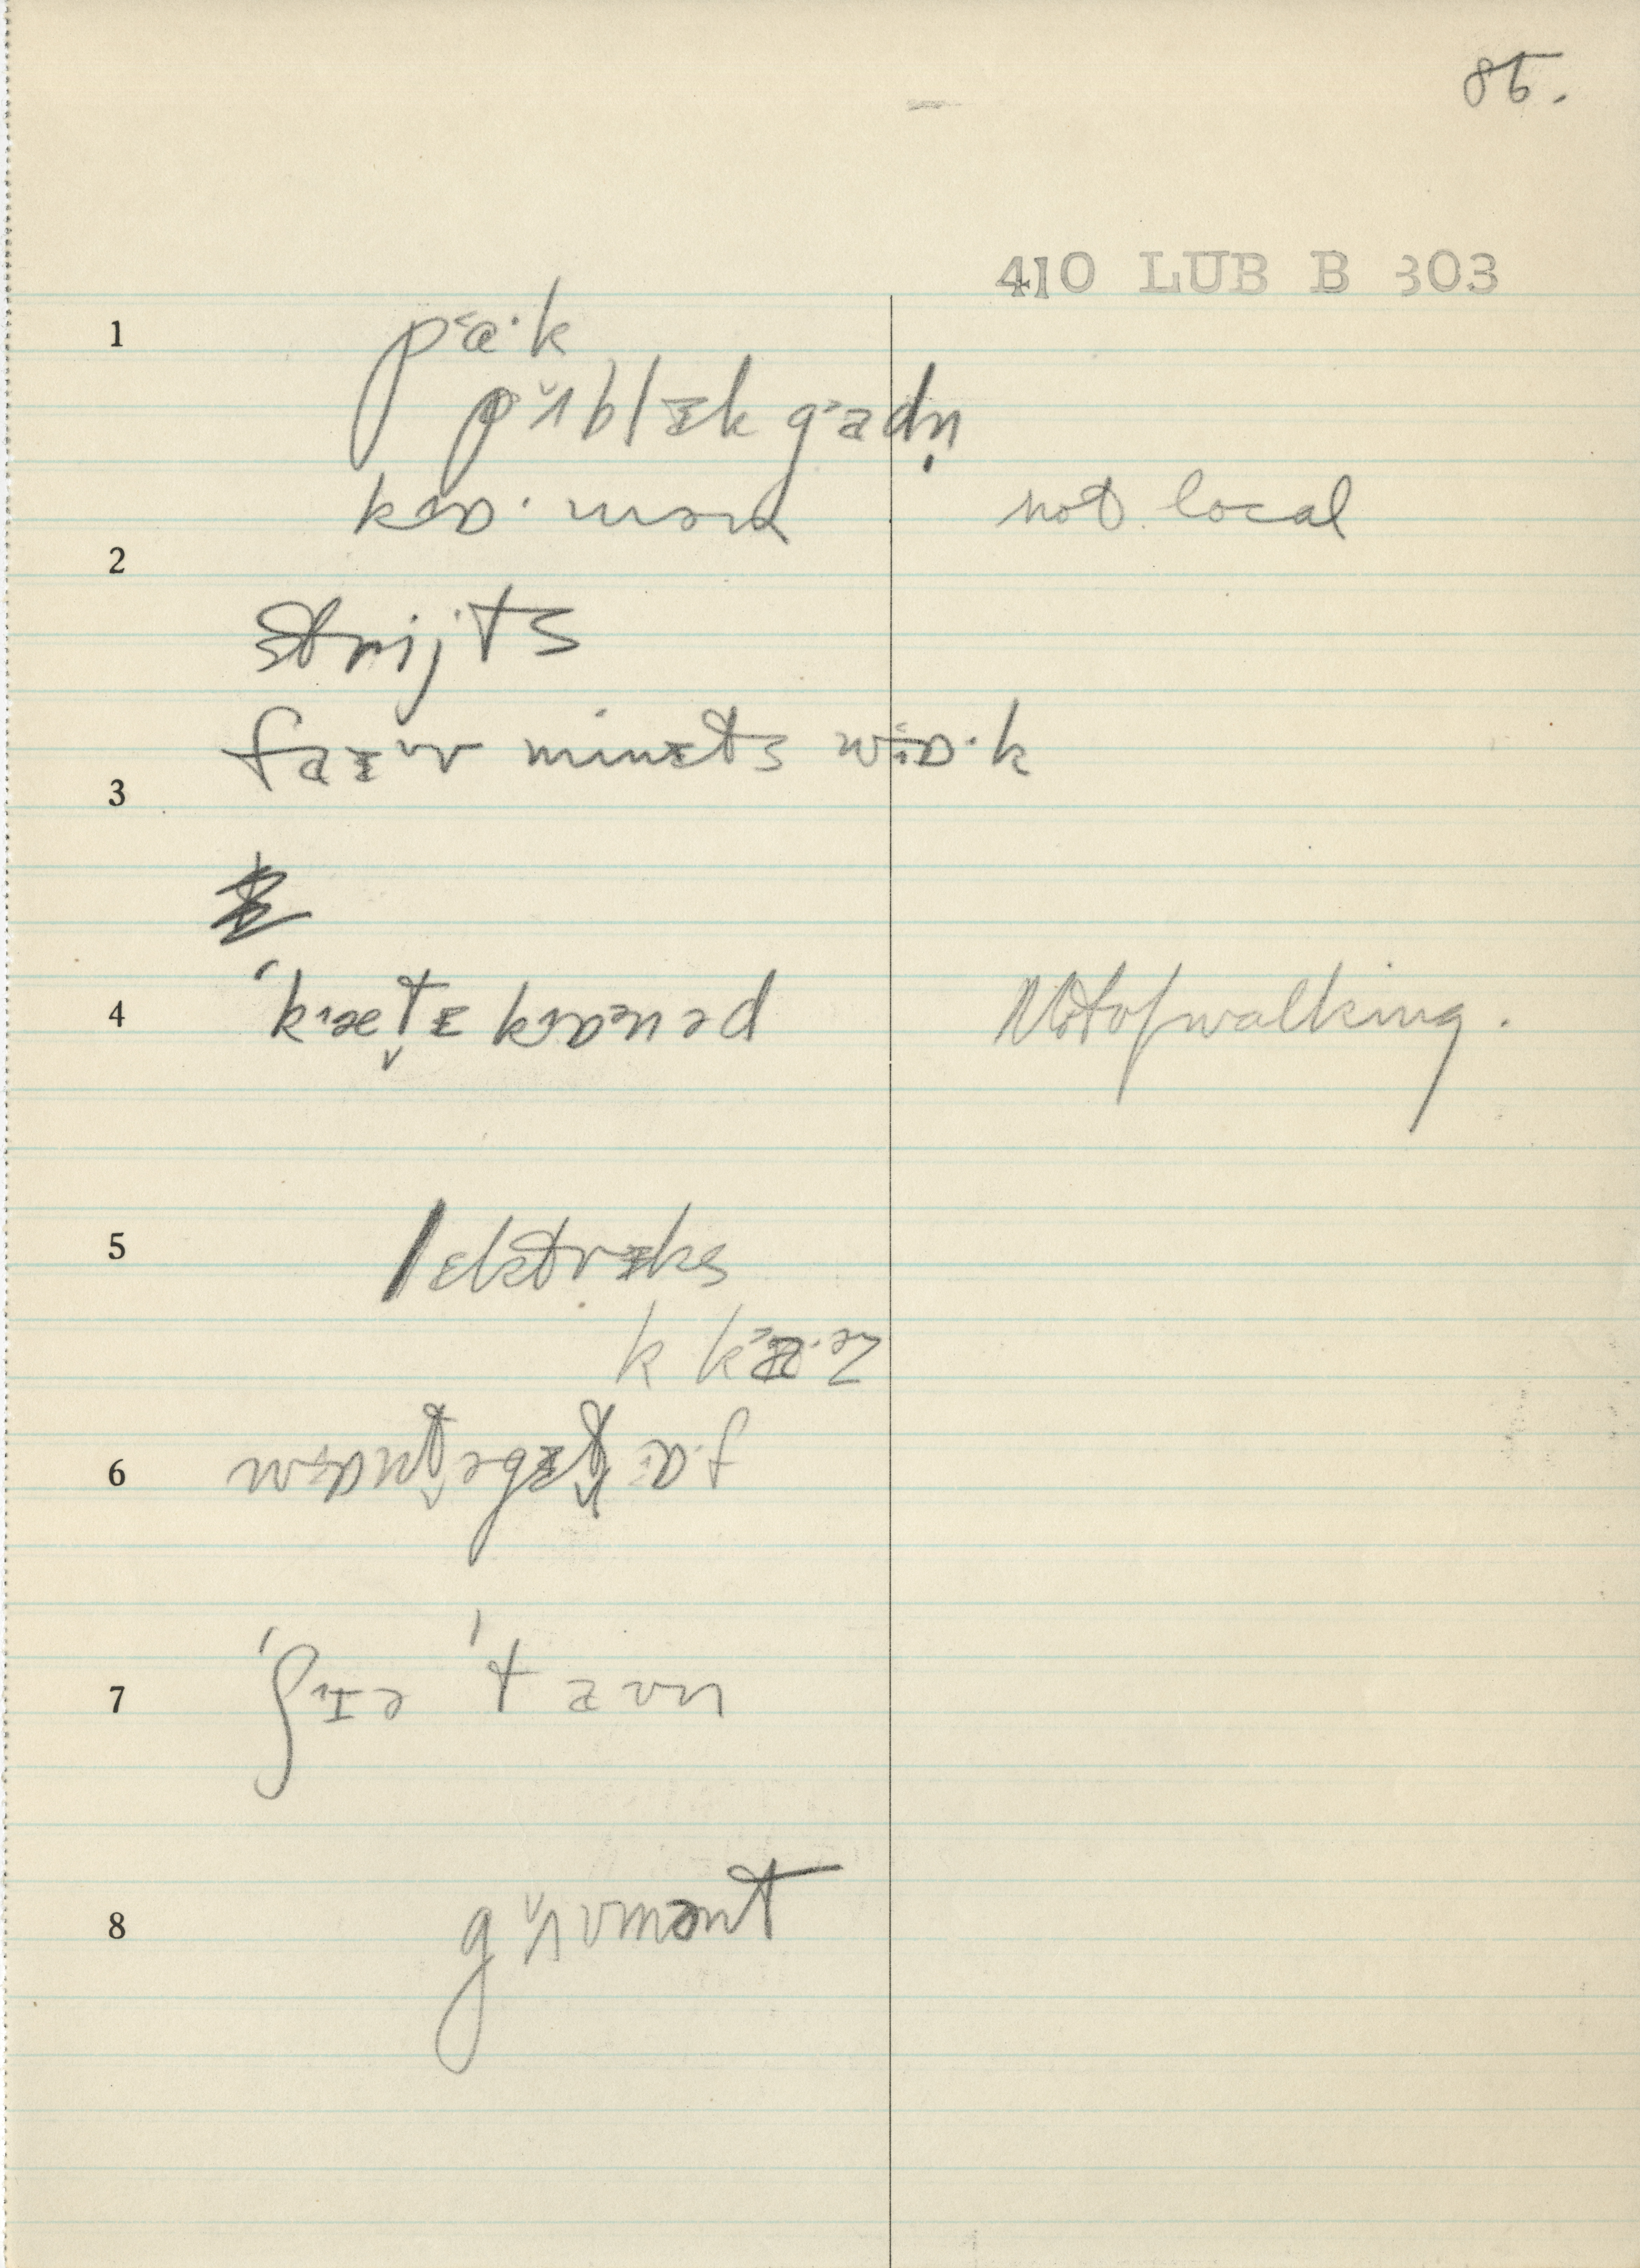 85.
410 LUB B 303
1 pa˂·k
pʌ̆blɪk ga˃dn̩
kɒ·mən not local
2 strijts
3 faɪv minɪts wɒ·k
4 ˈkæt̬ɪ kɒnəd Not of walking.
5 lɛktrɪks
k ka˃·əz
6
7 ˈʃɪə ˈtaʊn
8 gʌ̆vmənt